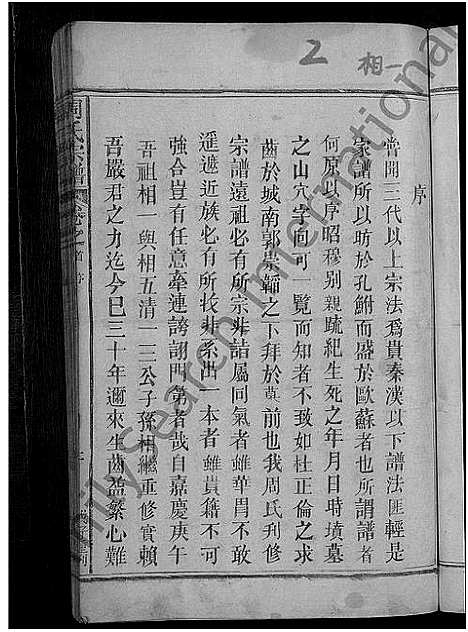 2 相一
序
曾聞三代以上宗法爲貴秦漢以下譜法匪輕是
家譜所以昉於孔鮒而盛於歐蘇者也所謂譜者
何原以序昭穆別親疏紀生死之年月日時墳墓
之山穴字向可一覽而知者不致如杜正倫之求
齒於城南郭崇韜之下拜於墓前也我周氏刋修
宗譜遠祖必有所宗非詰屬同氣者雖華胄不敢
遥遡近族必有所收非系出一本者雖貴籍不可
強合豈有任意牽連誇詡門第者哉自嘉慶庚午
吾祖相一與相五清一三公子孫相繼重修實賴
吾嚴君之力迄今已三十年邇來生齒益繁心難
周氏宗譜 卷之首 序
Family Search International